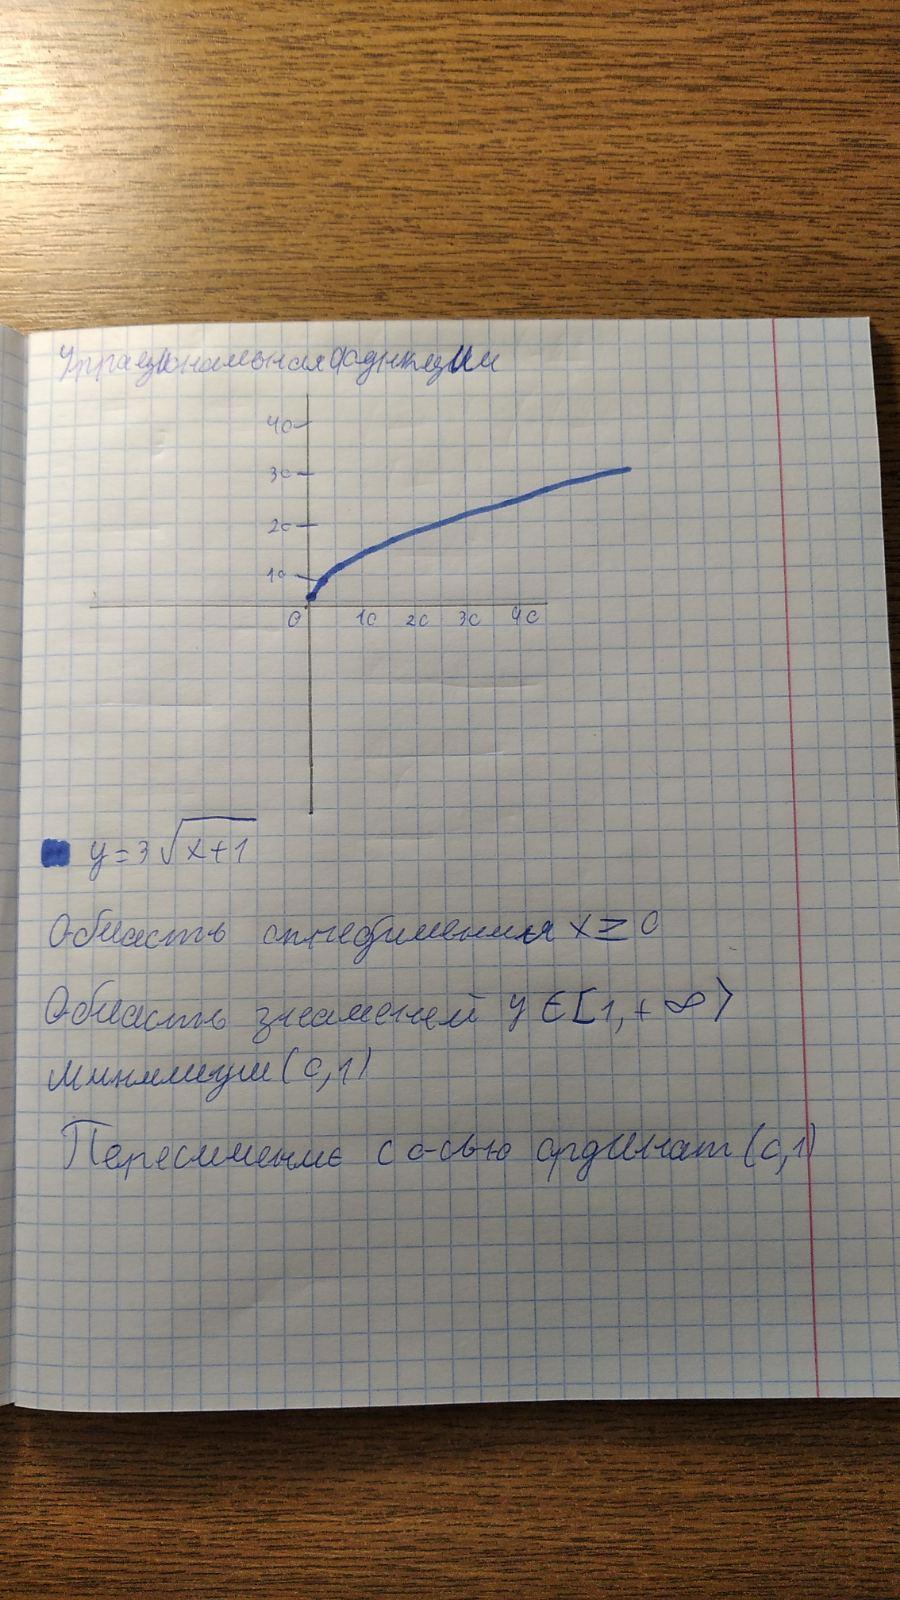 Иррациональная функции
40
30
20
10
0 10 20 30 40
y=3√x+1
Область определения x≥0
Область значений y∈[1,+∞)
Минимум (0,1)
Пересичение с осью ординат (0,1)